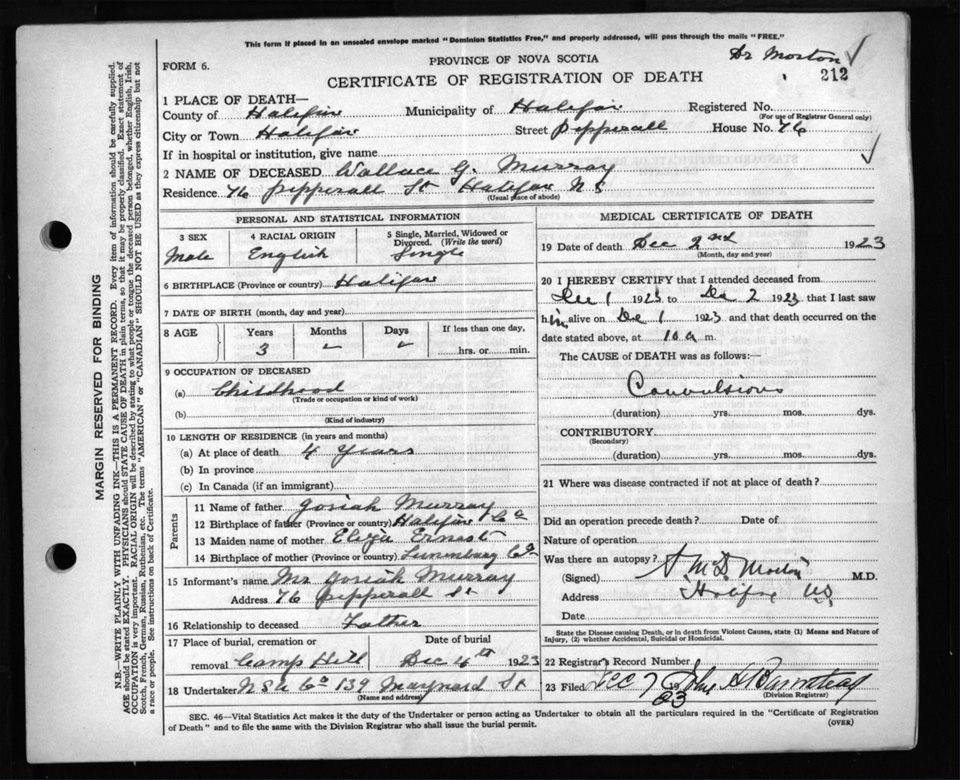 This form if placed in an unsealed envelope marked "Dominion Statistics Free," and properly addressed, will pass through the mails "FREE."
FORM 6.
PROVINCE OF NOVA SCOTIA
Dr Morton
CERTIFICATE OF REGISTRATION OF DEATH
212
1 PLACE OF DEATH—
County of Halifax Municipality of Halifax Registered No.
(For use of Registrar General only)
City or Town Halifax Street Pepperall House No. 76
If in hospital or institution, give name
2 NAME OF DECEASED Wallace G. Murray
Residence 76 Pepperall St Halifax N S
(Usual place of abode)
PERSONAL AND STATISTICAL INFORMATION
3 SEX 4 RACIAL ORIGIN 5 Single, Married, Widowed or Divorced. (Write the word)
Male English Single
6 BIRTHPLACE (Province or country) Halifax
7 DATE OF BIRTH (month, day and year)
8 AGE Years Months Days If less than one day,
3 hrs. or min.
9 OCCUPATION OF DECEASED
(a) Childhood
(Trade or occupation or kind of work)
(b)
(Kind of industry)
10 LENGTH OF RESIDENCE (in years and months)
(a) At place of death 4 Years
(b) In province
(c) In Canada (if an immigrant)
Parents
11 Name of father Josiah Murray
12 Birthplace of father (Province or country) Halifax Co
13 Maiden name of mother Eliza Ernest
14 Birthplace of mother (Province or country) Lunenburg Co
15 Informant's name Mr Josiah Murray
Address 76 Pepperall St
16 Relationship to deceased Father
17 Place of burial, cremation or removal Camp Hill
Date of burial Dec 4th 1923
18 Undertaker N S U Co 139 Maynard St
(Name and address)
MEDICAL CERTIFICATE OF DEATH
19 Date of death Dec 2nd 1923
(Month, day and year)
20 I HEREBY CERTIFY that I attended deceased from
Dec 1 1923 to Dec 2 1923 that I last saw
him alive on Dec 1 1923 and that death occurred on the
date stated above, at 10 a m.
The CAUSE of DEATH was as follows:—
Convulsions
(duration) yrs. mos. dys.
CONTRIBUTORY
(Secondary)
(duration) yrs. mos. dys.
21 Where was disease contracted if not at place of death?
Did an operation precede death? Date of
Nature of operation
Was there an autopsy?
(Signed) Morton M.D.
Address Halifax NS
Date
State the Disease causing Death, or in death from Violent Causes, state (1) Means and Nature of
Injury, (2) whether Accidental, Suicidal or Homicidal.
22 Registrar's Record Number
23 Filed Dec 7 19 23 John H Barnstead
(Division Registrar)
SEC. 46—Vital Statistics Act makes it the duty of the Undertaker or person acting as Undertaker to obtain all the particulars required in the "Certificate of Registration
of Death" and to file the same with the Division Registrar who shall issue the burial permit.
(OVER)
MARGIN RESERVED FOR BINDING
N.B.—WRITE PLAINLY WITH UNFADING INK—THIS IS A PERMANENT RECORD. Every item of information should be carefully supplied.
AGE should be stated EXACTLY. PHYSICIANS should STATE CAUSE OF DEATH in plain terms, so that it may be properly classified. Exact statement of
OCCUPATION is very important. RACIAL ORIGIN will be described by stating to what people or tongue the deceased person belonged, whether English, Irish,
Scotch, French, German, Russian, Ruthenian, etc. The terms "AMERICAN" or "CANADIAN" SHOULD NOT BE USED as they express citizenship but not
a race or people. See instructions on back of Certificate.